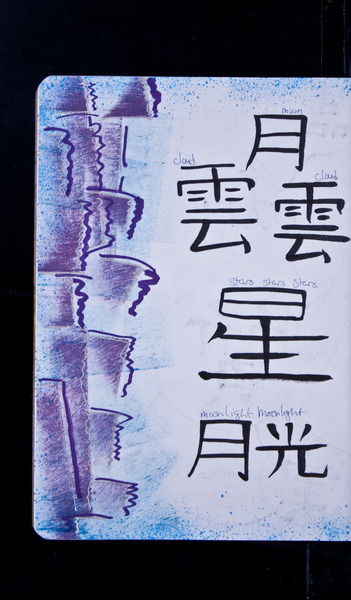 moon
月
cloud
雲
cloud
雲
stars stars stars
星
moonlight moonlight
月光